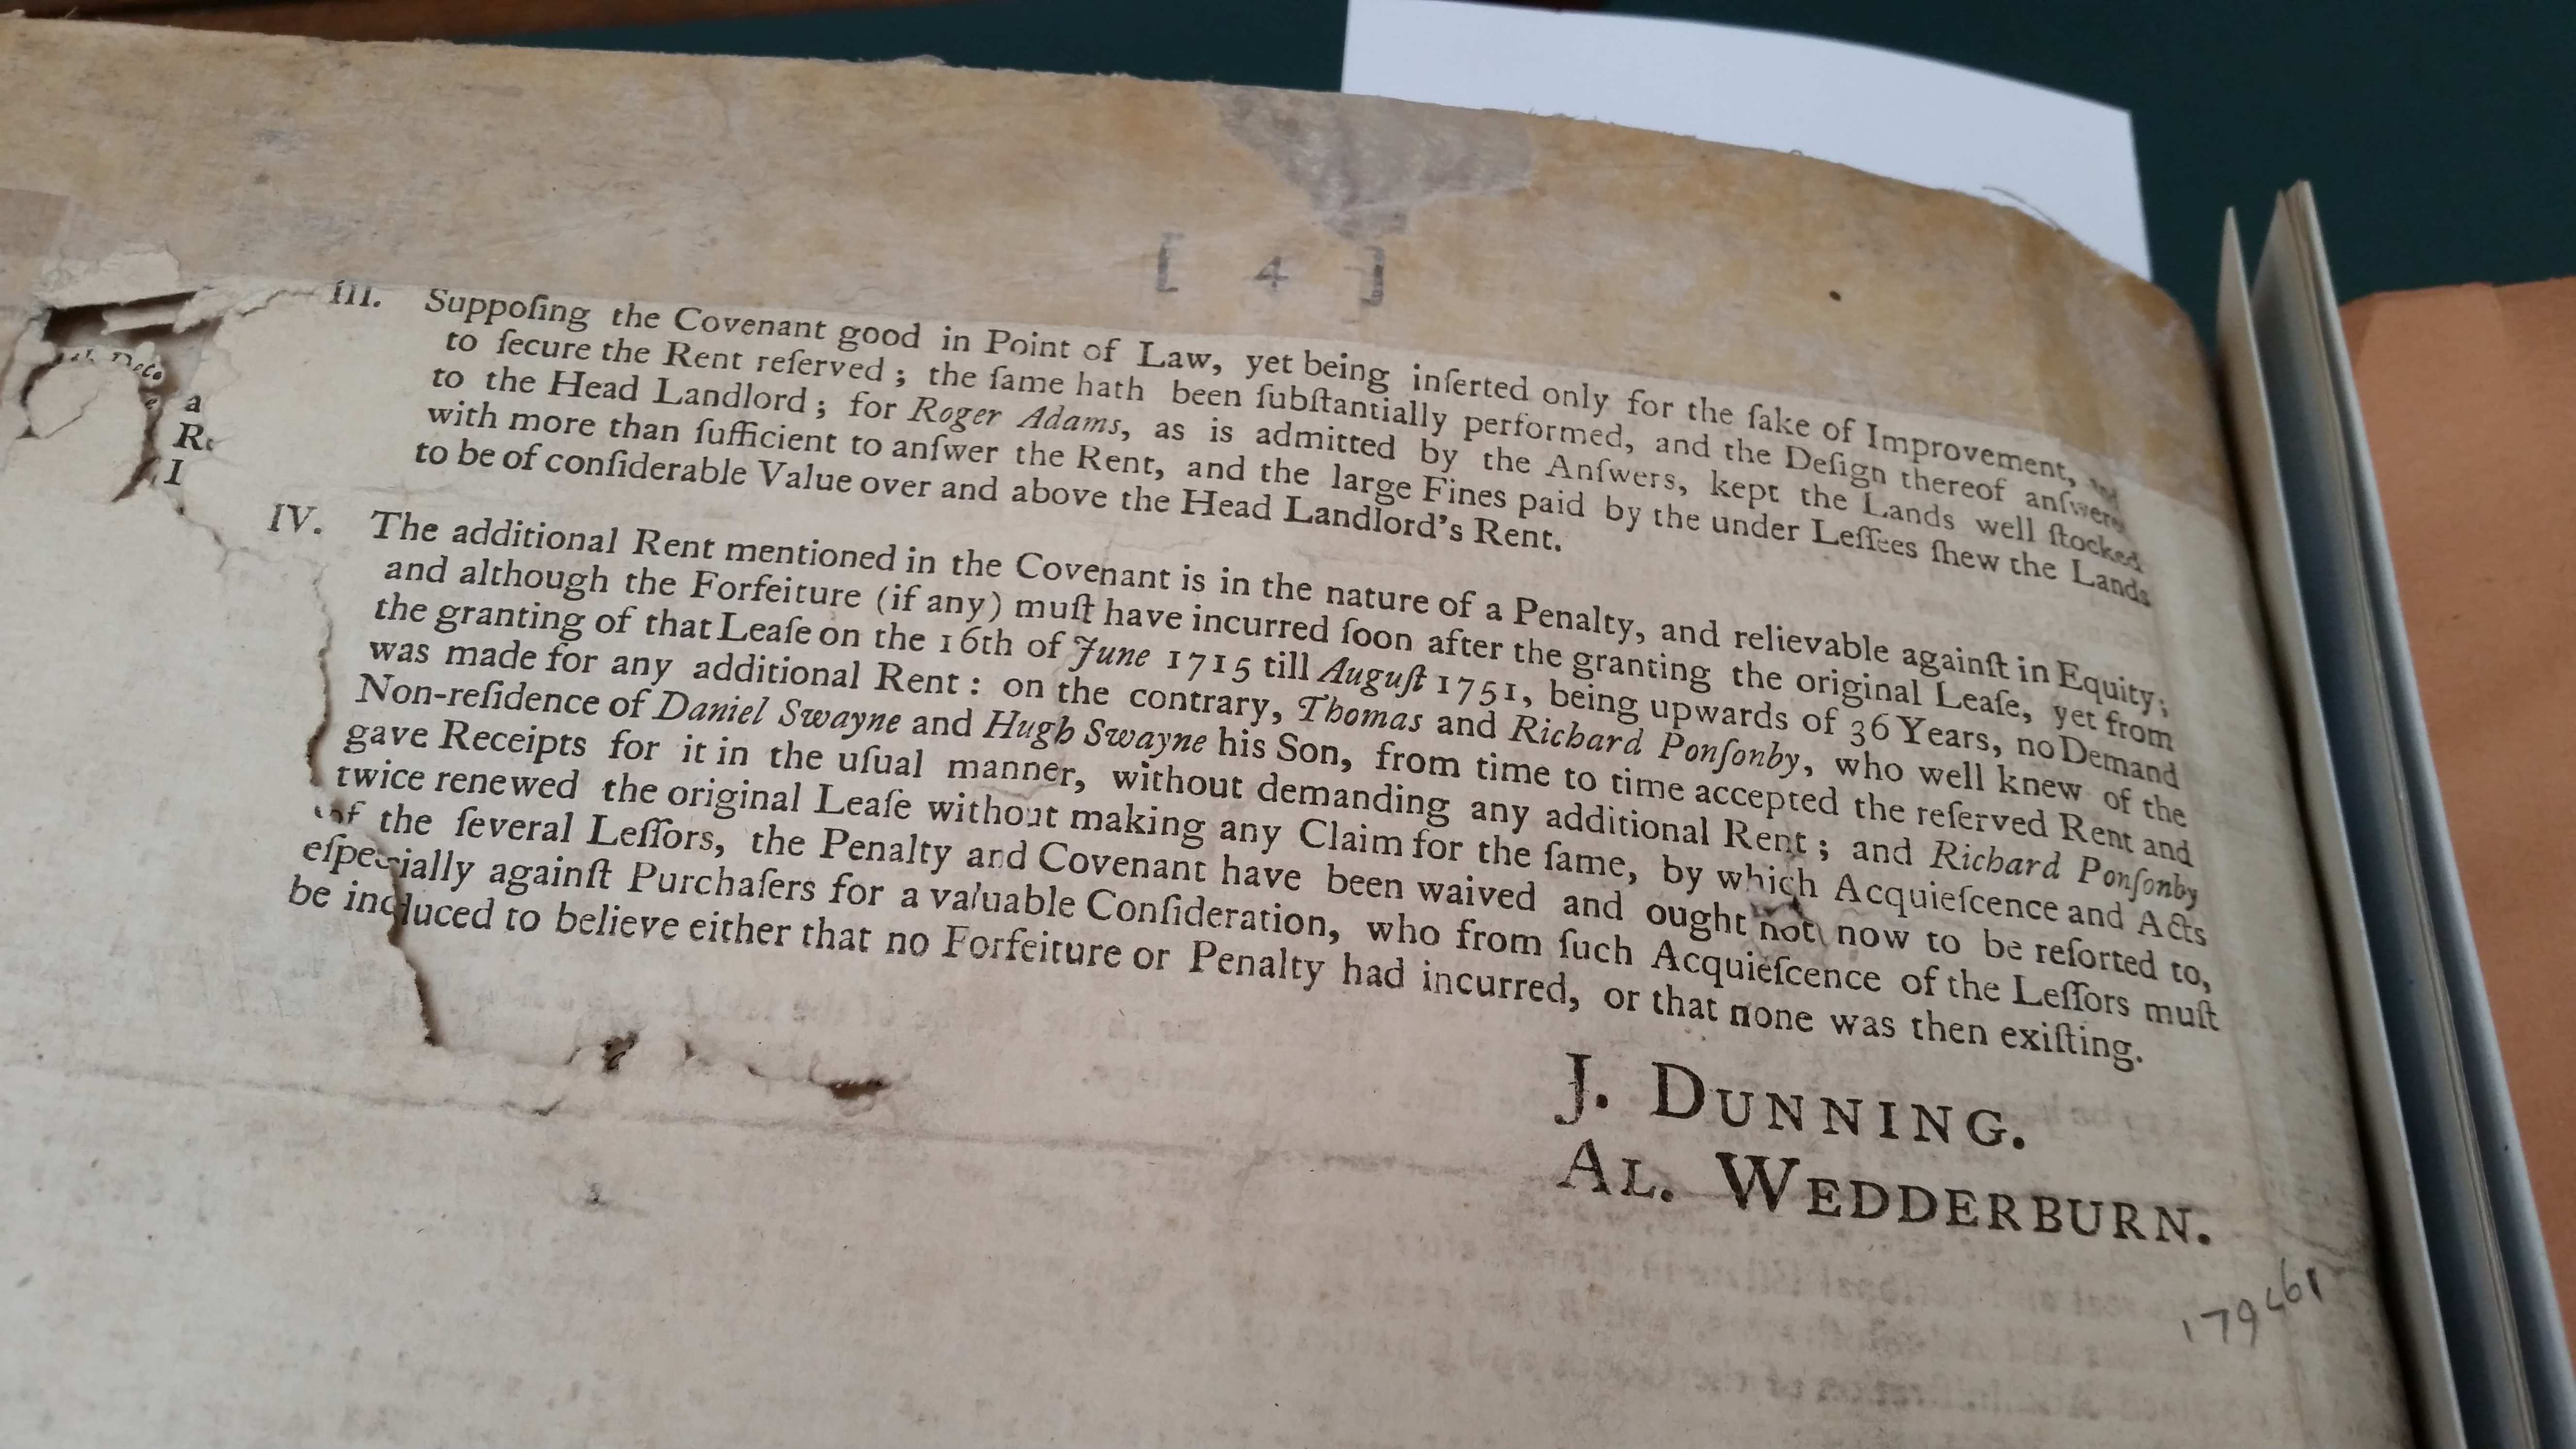 [ 4 ]
III. Suppoſing the Covenant good in Point of Law, yet being inſerted only for the ſake of Improvement, and
to ſecure the Rent reſerved; the ſame hath been ſubſtantially performed, and the Deſign thereof anſwered
to the Head Landlord; for Roger Adams, as is admitted by the Anſwers, kept the Lands well ſtocked
with more than ſufficient to anſwer the Rent, and the large Fines paid by the under Leſſees ſhew the Lands
to be of conſiderable Value over and above the Head Landlord's Rent.
IV. The additional Rent mentioned in the Covenant is in the nature of a Penalty, and relievable againſt in Equity;
and although the Forfeiture (if any) muſt have incurred ſoon after the granting the original Leaſe, yet from
the granting of that Leaſe on the 16th of June 1715 till Auguſt 1751, being upwards of 36 Years, no Demand
was made for any additional Rent: on the contrary, Thomas and Richard Ponſonby, who well knew of the
Non-reſidence of Daniel Swayne and Hugh Swayne his Son, from time to time accepted the reſerved Rent and
gave Receipts for it in the uſual manner, without demanding any additional Rent; and Richard Ponſonby
twice renewed the original Leaſe without making any Claim for the ſame, by which Acquieſcence and Acts
of the ſeveral Leſſors, the Penalty and Covenant have been waived and ought not now to be reſorted to,
eſpecially againſt Purchaſers for a valuable Conſideration, who from ſuch Acquieſcence of the Leſſors muſt
be induced to believe either that no Forfeiture or Penalty had incurred, or that none was then exiſting.
J. DUNNING.
AL. WEDDERBURN.